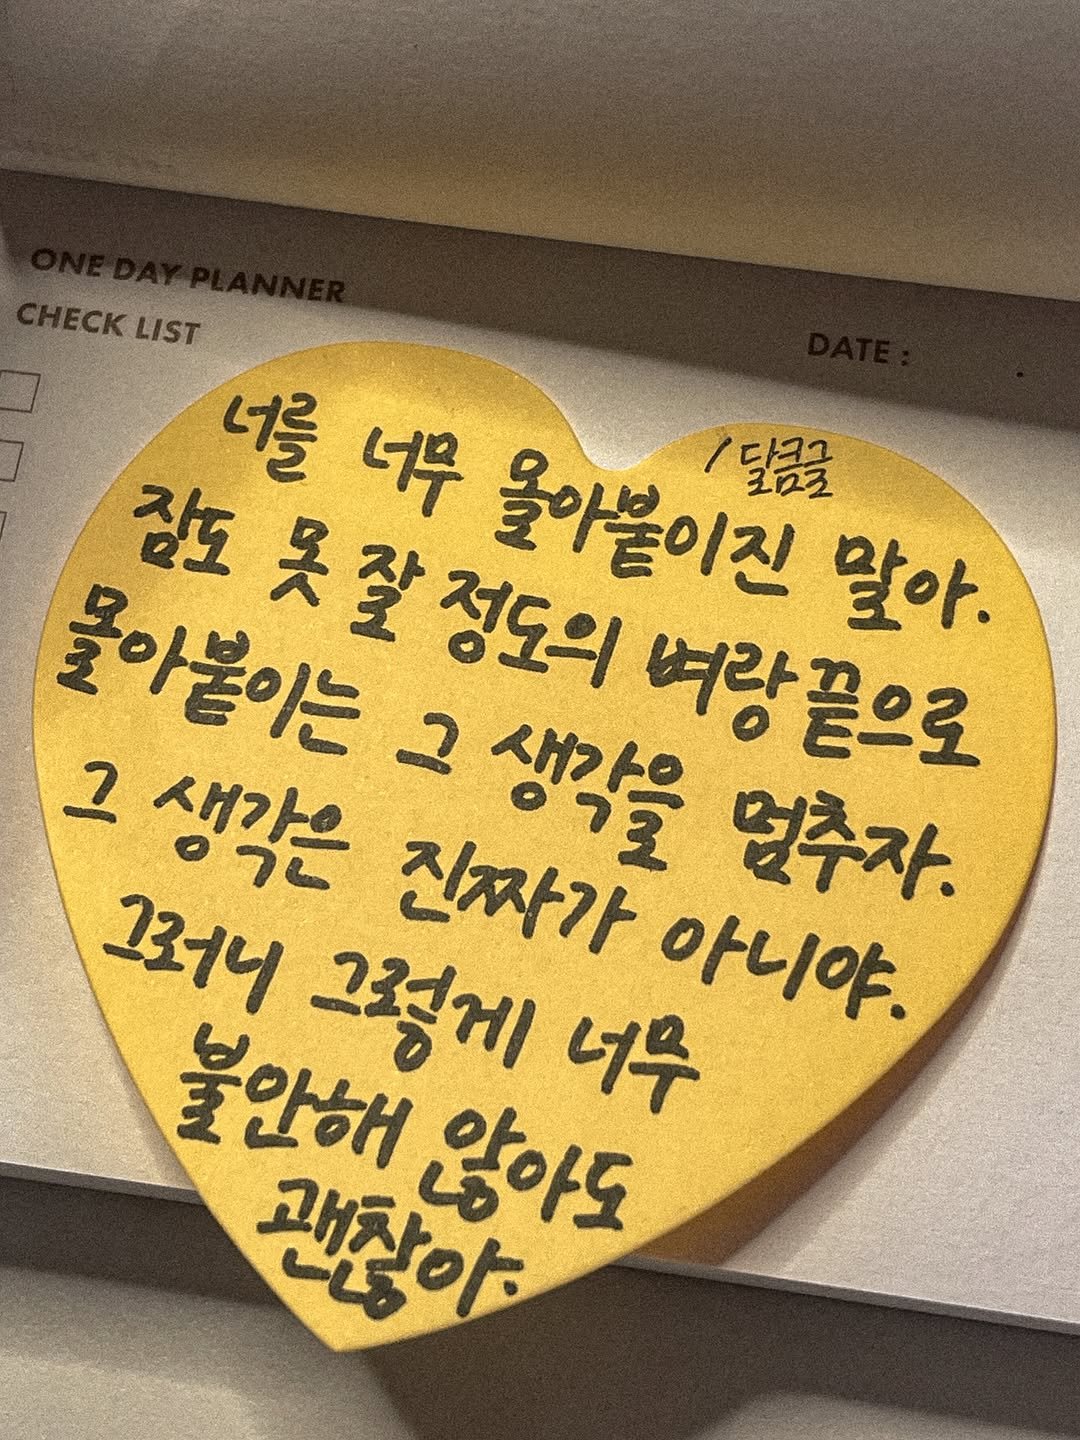 ONE DAY PLANNER
CHECK LIST
DATE : .
/달콤글
너를 너무 몰아붙이진 말아.
잠도 못 잘 정도의 벼랑 끝으로
몰아붙이는 그 생각을 멈추자.
그 생각은 진짜가 아니야.
그러니 그렇게 너무
불안해 않아도
괜찮아.